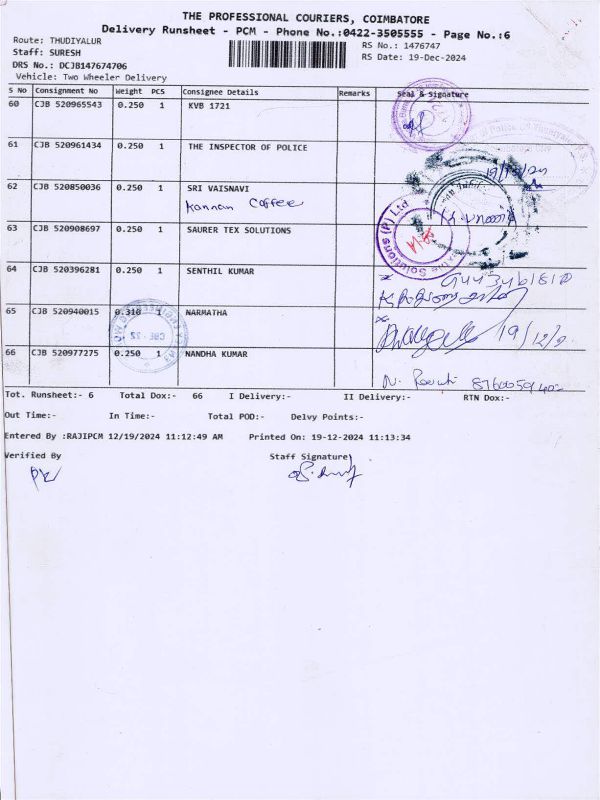 THE PROFESSIONAL COURIERS, COIMBATORE
Delivery Runsheet - PCM - Phone No.:0422-3505555 - Page No.:6
Route: THUDIYALUR
RS No.: 1476747
Staff: SURESH
RS Date: 19-Dec-2024
DRS No.: DCJB147674706
Vehicle: Two Wheeler Delivery
S No Consignment No Weight PCS Consignee Details Remarks Seal & Signature
60 CJB 520965543 0.250 1 KVB 1721
61 CJB 520961434 0.250 1 THE INSPECTOR OF POLICE
19/12/24
62 CJB 520850036 0.250 1 SRI VAISNAVI
Kannan Coffee
63 CJB 520908697 0.250 1 SAURER TEX SOLUTIONS
Solutions (P) Ltd
64 CJB 520396281 0.250 1 SENTHIL KUMAR
65 CJB 520940015 0.310 1 NARMATHA
19/12/2
66 CJB 520977275 0.250 1 NANDHA KUMAR
CBE-22
Tot. Runsheet:- 6 Total Dox:- 66 I Delivery:- II Delivery:- RTN Dox:-
Out Time:- In Time:- Total POD:- Delvy Points:-
Entered By :RAJIPCM 12/19/2024 11:12:49 AM Printed On: 19-12-2024 11:13:34
Verified By Staff Signature